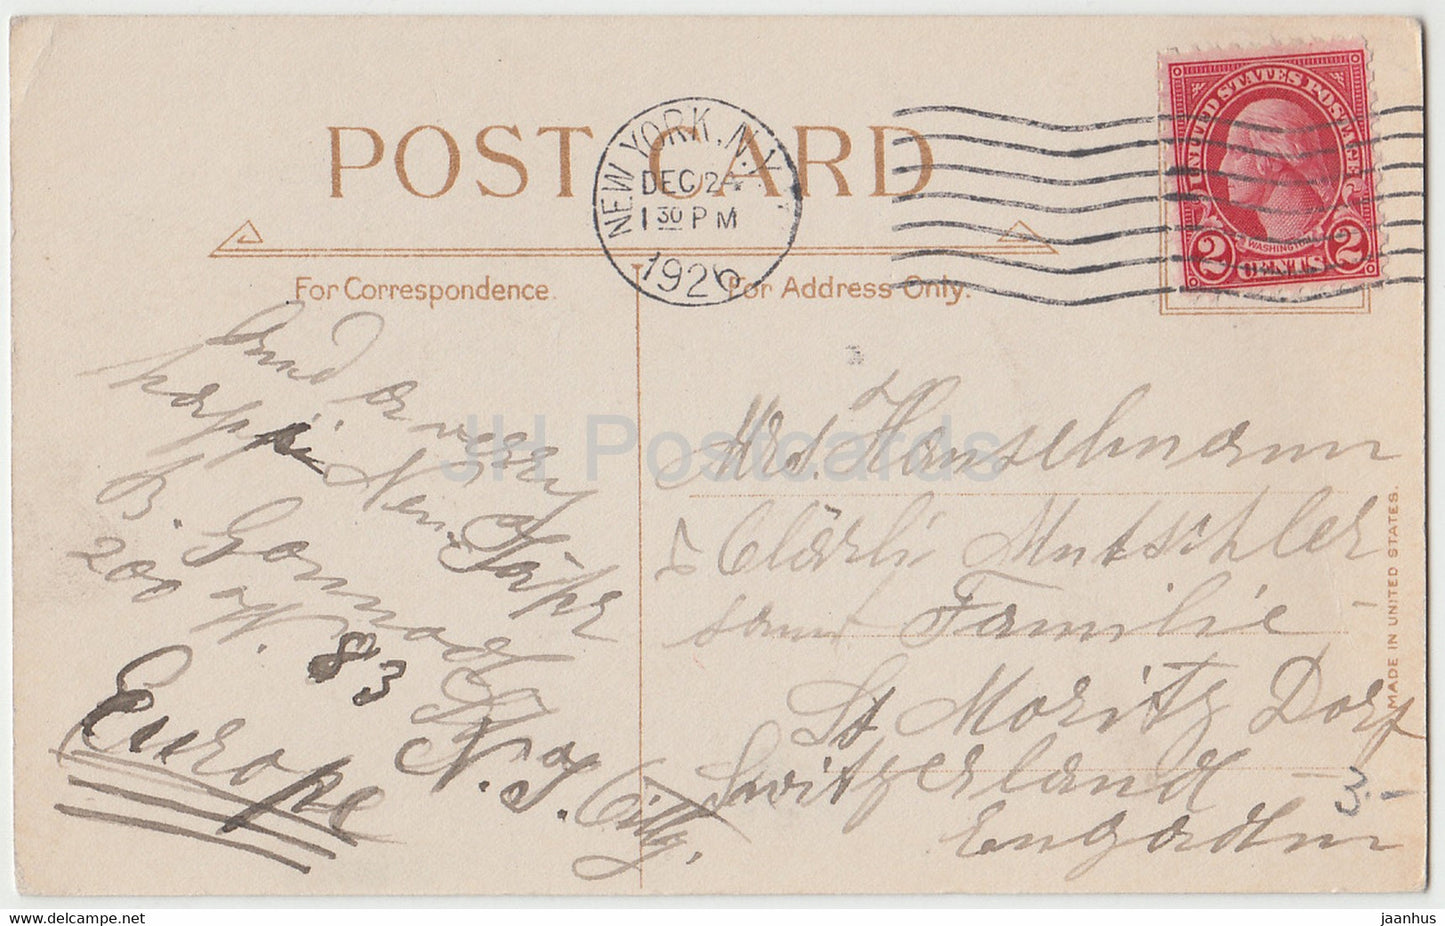 POST CARD
NEW YORK, N.Y.
DEC 24
1 30 PM
1926
UNITED STATES POSTAGE
WASHINGTON
2 CENTS 2
For Correspondence.
For Address Only.
And a very
happi New Jahr
B.
200 W. 83 St
N. Y. City.
Europe
Mrs Hanselmann
Clärli Mutschler
samt Familie
St Moritz Dorf
Switzerland
Engadin
3.-
MADE IN UNITED STATES.
JH Postcards
jaanhus